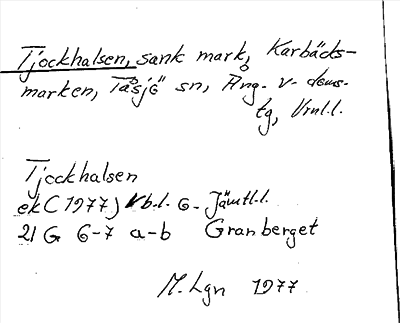 Tjockhalsen, sank mark, Karbäcks-
marken, Tåsjö sn, Ång. v- doms-
tg, Vnl.l.
Tjockhalsen
ek (1977) Vb.l. o. Jämtl.l.
21 G 6-7 a-b Granberget
M. Lgn 1977